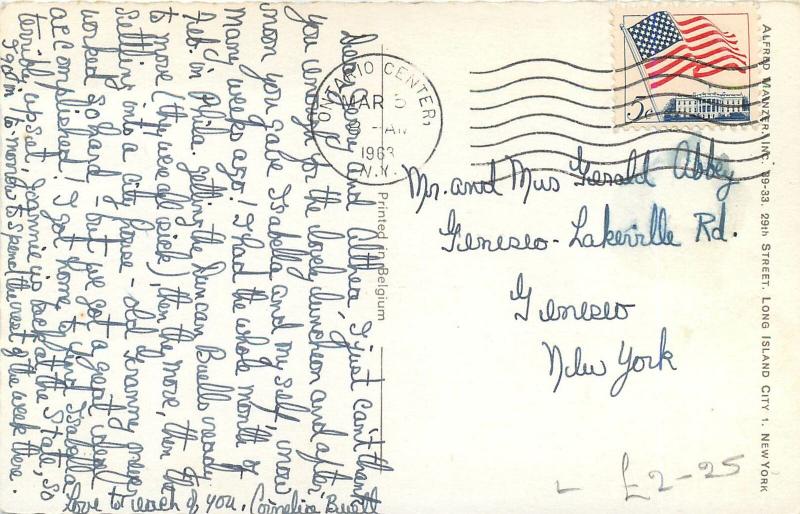 Dear Gerry and Althea, I just can't thank
you enough for the lovely luncheon and after-
noon you gave Isabella and myself, now
many weeks ago! I had the whole month of
Feb. in Phila. getting the Duncan Buells ready
to move (they were all sick), then the move, then the
settling into a city house - old Granny never
worked so hard - but we got a great deal
accomplished! I got home to find Isabella
terribly upset, Jeannie is back at the State, so
I go in to-morrow to spend the rest of the week there.
Love to each of you. Cornelia Buell
Printed in Belgium
ONTARIO CENTER,
MAR 5
AM
1963
N.Y.
5c
Mr. and Mrs Gerald Abbey
Geneseo - Lakeville Rd.
Geneseo
New York
ALFRED MAINZER, INC. 39-33. 29TH STREET, LONG ISLAND CITY 1, NEW YORK
£2-25